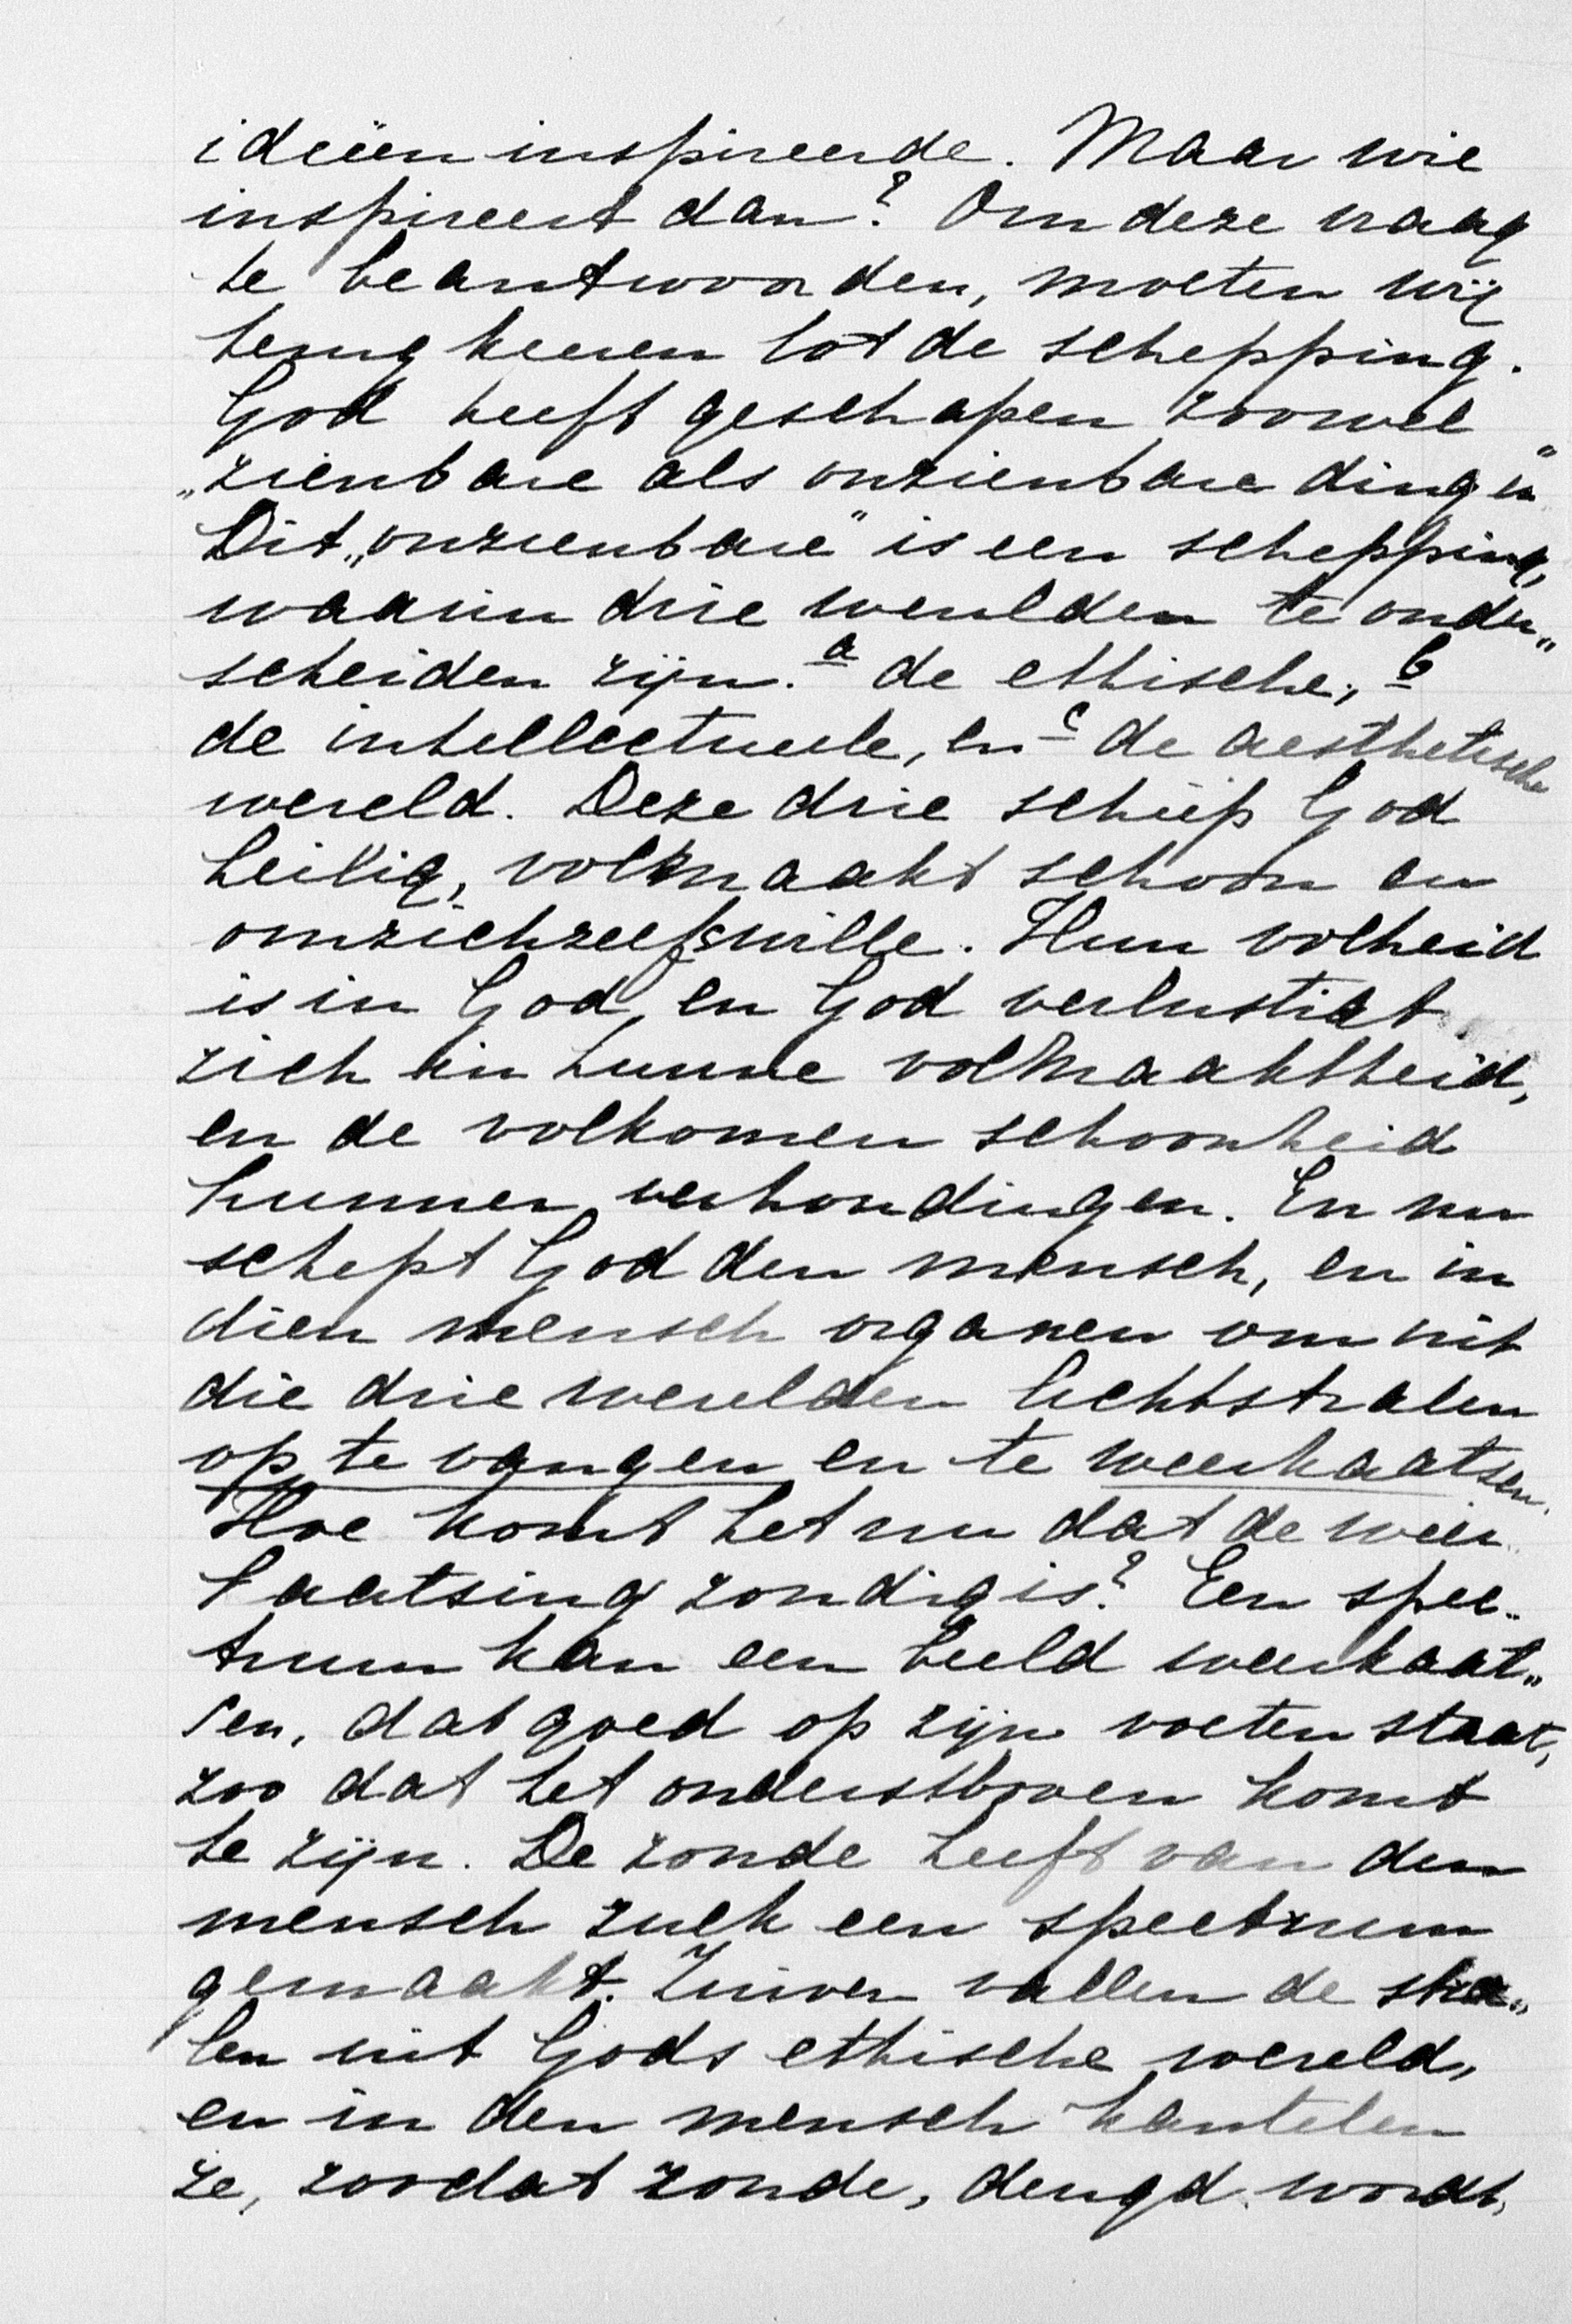 ideëen inspireerde. Maar wie
inspireert dan? Om deze vraag
te beantwoorden, moeten wij
terug keeren tot de schepping.
God heeft geschapen zoowel
„zienbare als onzienbare dingen"
Dit „onzienbare" is een schepping,
waarin drie werelden te onder„
scheiden zijn. a de ethische, b
de intellectueele, en c de aesthetische
wereld. Deze drie schiep God
heilig, volmaakt schoon en
omzichzelfswille. Hun volheid
is in God, en God verlustigt
zich in hunne volmaaktheid,
en de volkomen schoonheid
hunner verhoudingen. En nu
schept God den mensch, en in
dien mensch organen om uit
die drie werelden lichtstralen
op te vangen en te weerkaatsen.
Hoe komt het nu dat de weer„
kaatsing zondig is? Een spec„
trum kan een beeld weerkaat„
sen, dat goed op zijn voeten staat,
zoo dat het onderstboven komt
te zijn. De zonde heeft van den
mensch zulk een spectrum
gemaakt. Zuiver vallen de stra„
len uit Gods ethische wereld,
en in den mensch kantelen
ze, zoodat zonde, deugd wordt,